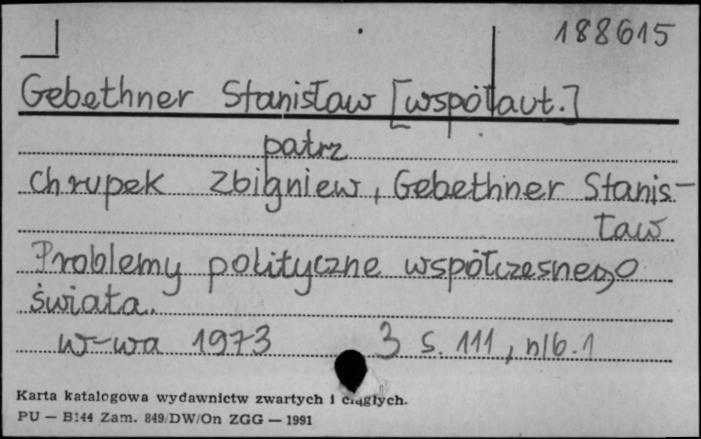 188615
Gebethner Stanisław [współaut.]
patrz
Chrupek Zbigniew, Gebethner Stanis-
ław
Problemy polityczne współczesnego
świata.
W-wa 1973 3 s. 111, nlb. 1
Karta katalogowa wydawnictw zwartych i ciągłych.
PU — B144 Zam. 849/DW/On ZGG — 1991